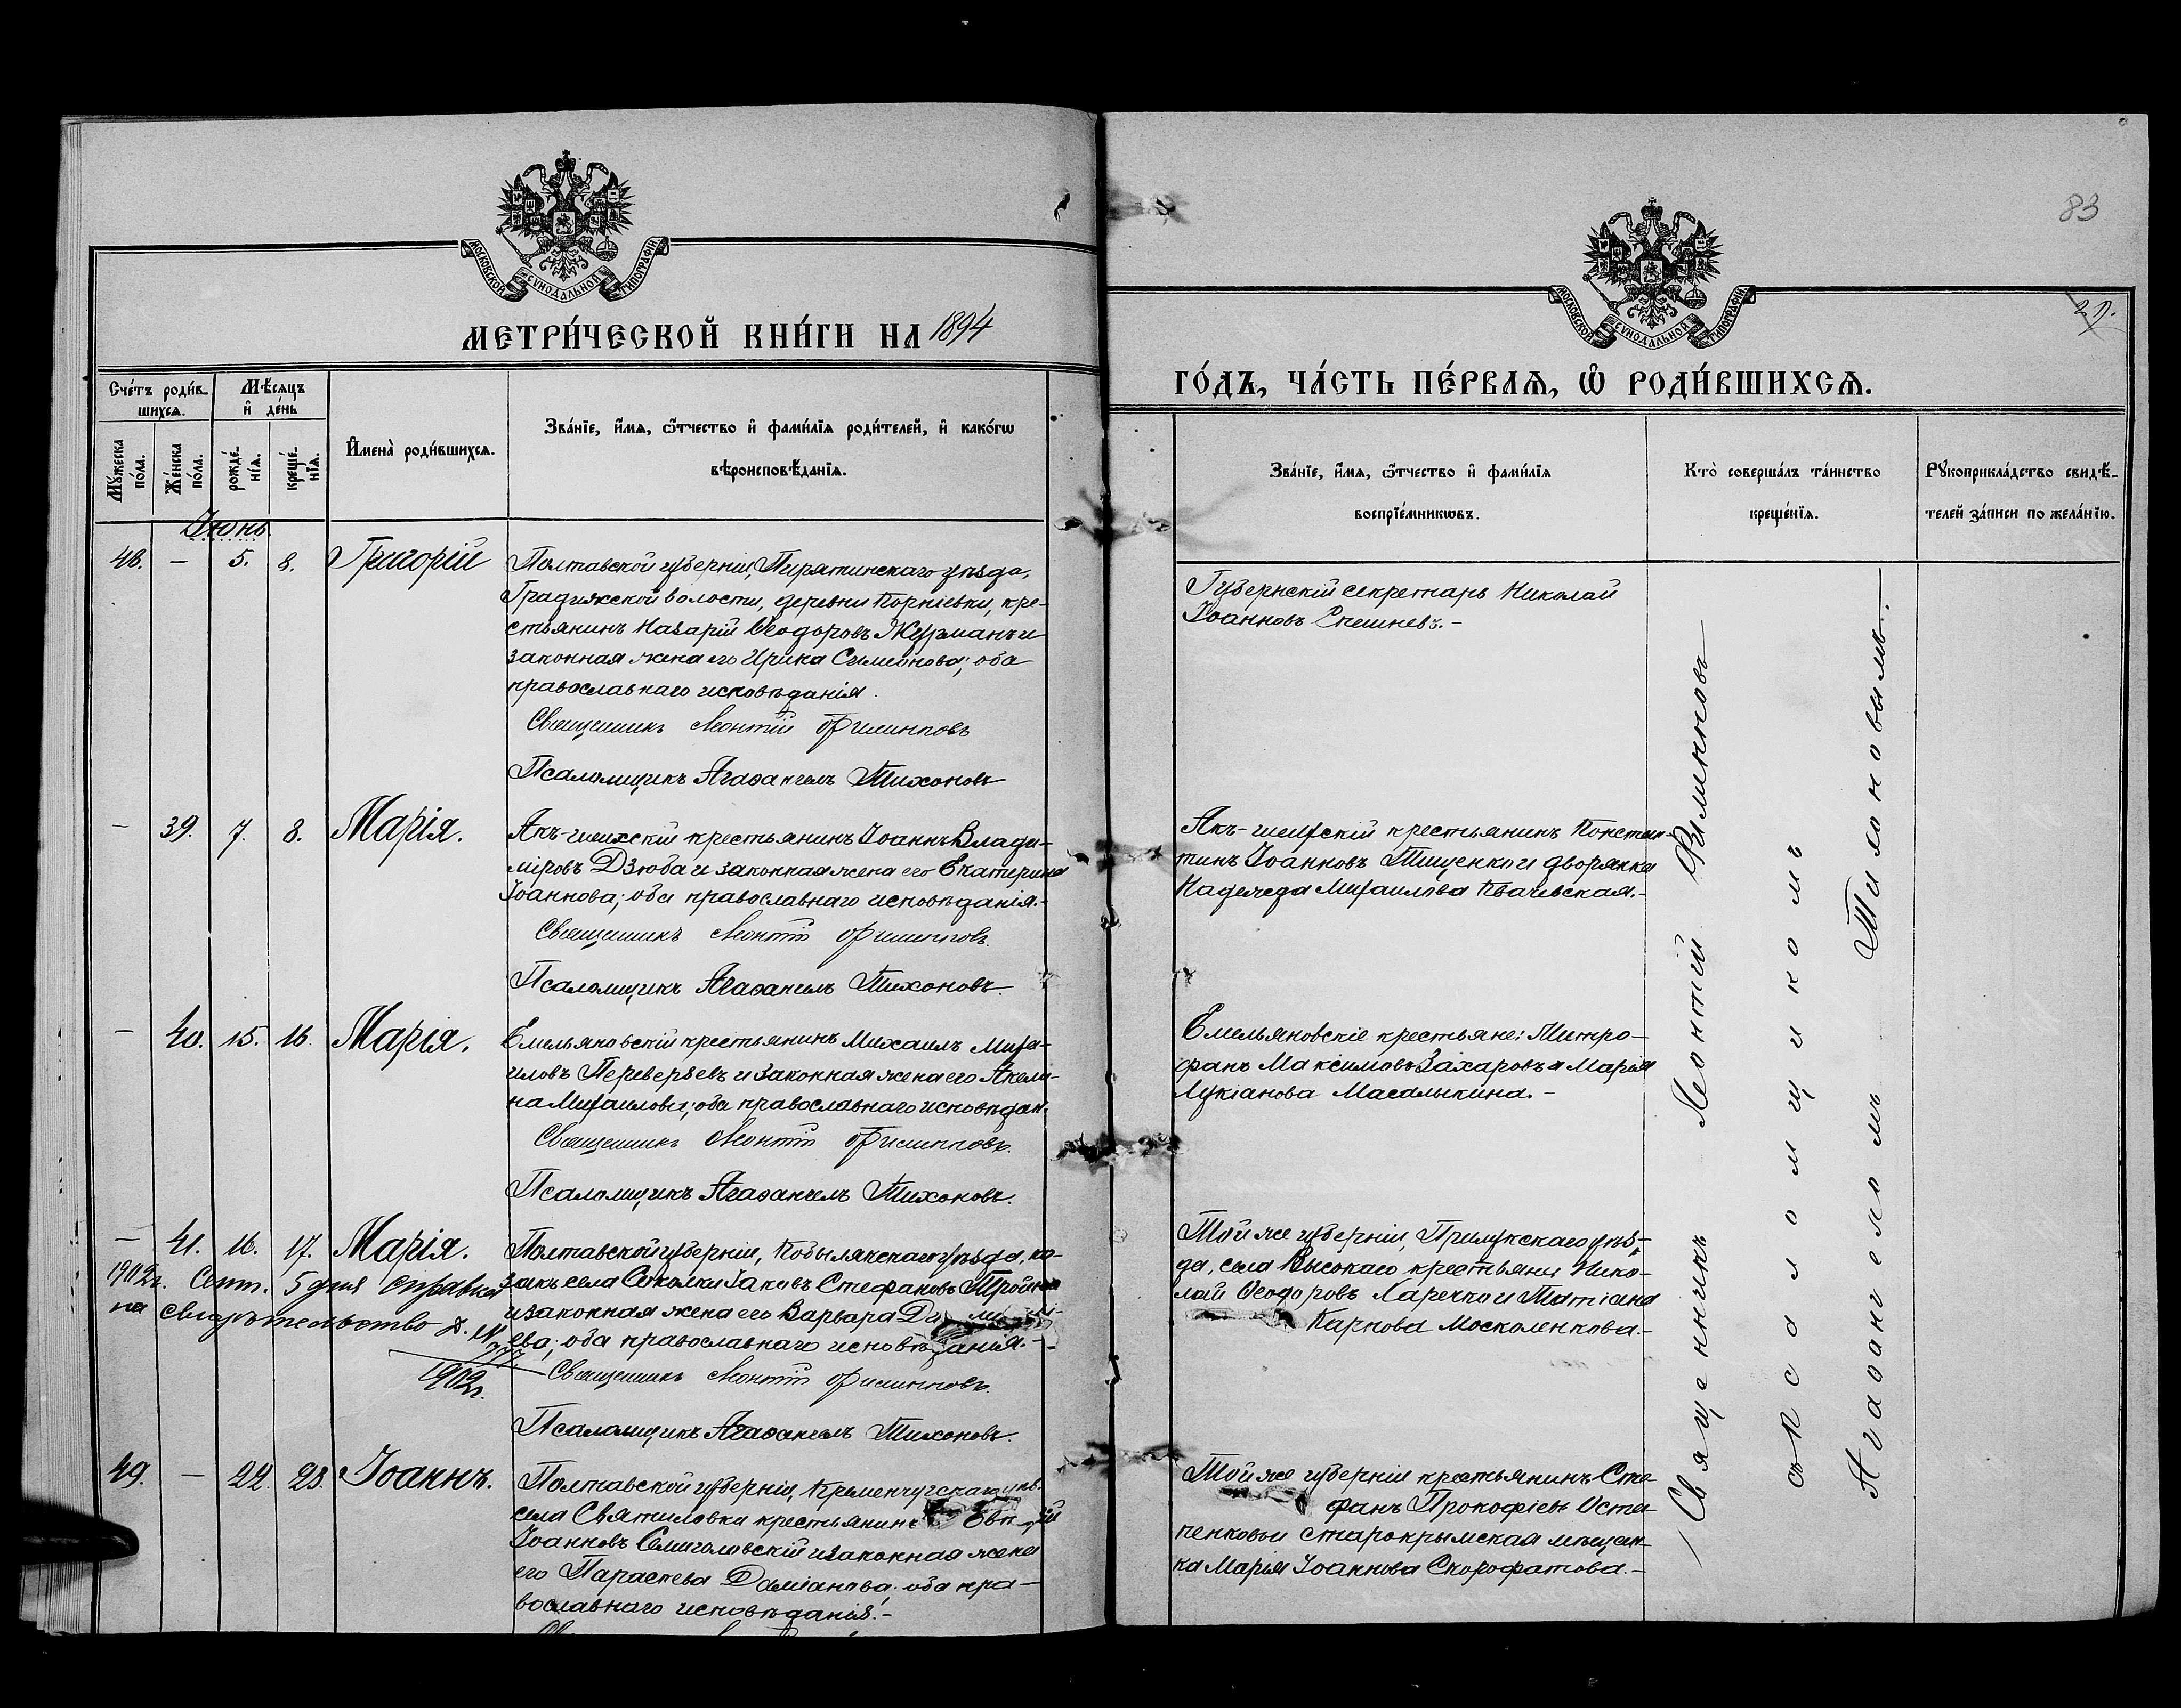 МОСКОВСКОЙ СУНОДАЛЬНОЙ ТИПОГРАФІИ
МЕТРИ́ЧЕСКОЙ КНИ́ГИ НА 1894
Сче́тъ роди́в-
шихся.
Мѣ́сяцъ
и҆ де́нь
Мꙋ́жеска
по́ла.
Же́нска
по́ла.
рожде́-
нїя.
креще́-
нїя.
И҆мена̀ роди́вшихся.
Зва́нїе, и҆́мя, ѻ҆́тчество и҆ фами́лїя роди́телей, и҆ како́гѡ
вѣроисповѣ́данїя.
Іюнь.
48. — 5. 8. Григорій
Полтавской губерніи, Пирятинскаго уѣзда,
Градижской волости, деревни Корніевки, кре-
стьянинъ Назарій Ѳеодоровъ Журманъ и
законная жена его Ирина Симеонова; оба
православнаго исповѣданія.
Священникъ Леонтій Филипповъ
Псаломщикъ Агаѳангелъ Тихоновъ
— 39. 7. 8. Марія.
Акъ-шеихскій крестьянинъ Іоаннъ Влади-
міровъ Дзюба и законная жена его Екатерина
Іоаннова; оба православнаго исповѣданія.-
Священникъ Леонтій Филипповъ.
Псаломщикъ Агаѳангелъ Тихоновъ.
— 40. 15. 16. Марія.
Емельяновскій крестьянинъ Михаилъ Миха-
иловъ Переверзевъ и законная жена его Акели-
на Михаилова; оба православнаго исповѣдан.
Священникъ Леонтій Филипповъ.
Псаломщикъ Агаѳангелъ Тихоновъ.
— 41. 16. 17. Марія.
Полтавской губерніи, Кобылякскаго уѣзда, ка-
закъ села Соколки Іаковъ Стефановъ
и законная жена его Варвара
ева; оба православнаго исповѣданія.-
1902г. Сент. 5 дня справка
на свидѣтельство
1902г.
Священникъ Леонтій Филипповъ.
Псаломщикъ Агаѳангелъ Тихоновъ.
49. — 22. 23. Іоаннъ.
Полтавской губерніи, Кременчугскаго уѣз.
села Святиловки крестьянинъ
Іоанновъ Семиголовскій и законная жена
его Параскева Даміанова; оба пра-
вославнаго исповѣданія.-
83
МОСКОВСКОЙ СУНОДАЛЬНОЙ ТИПОГРАФІИ
ГО́ДЪ, ЧА́СТЬ ПЕ́РВАЯ, Ѡ҆ РОДИ́ВШИХСЯ.
Зва́нїе, и҆́мя, ѻ҆́тчество и҆ фами́лїя
воспрїе́мникѡвъ.
Кто̀ соверша́лъ та́инство
креще́нїя.
Рꙋкоприкла́дство свидѣ́-
телей за́писи по жела́нїю.
Губернскій секретарь Николай
Іоанновъ Спешневъ.-
Акъ-шеихскій крестьянинъ Констан-
тинъ Іоанновъ Тищенко и дворянка
Надежда Михаилова Квачевская.-
Емельяновскіе крестьяне: Митро-
фанъ Максимовъ Захаровъ и Марія
Лукіанова Масалыкина.-
Той же губерніи, Прилукскаго уѣз-
да, села Высокаго крестьяни Нико-
лай Ѳеодоровъ Харечко и Татіана
Карпова Москаленкова.-
Той же губерніи крестьянинъ Сте-
фанъ Прокофіевъ Оста-
пенковъ и старокрымская мѣщан-
ка Марія Іоаннова Скорофатова.-
Священникъ Леонтій Филипповъ
съ Псаломщикомъ
Агаѳангеломъ Тихоновымъ.-